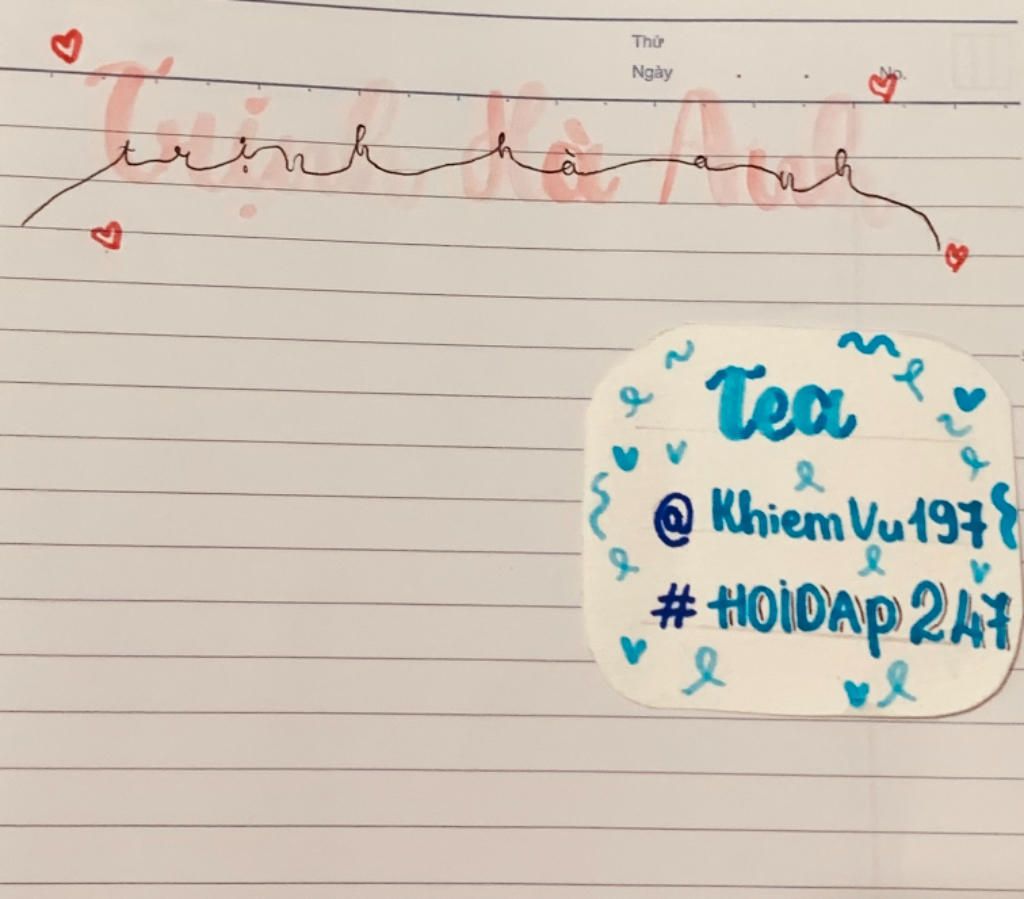 Thứ
Ngày . . No.
Trịnh Hà Anh
trịnh hà anh
Tea
@KhiemVu197
#HOIDAp247